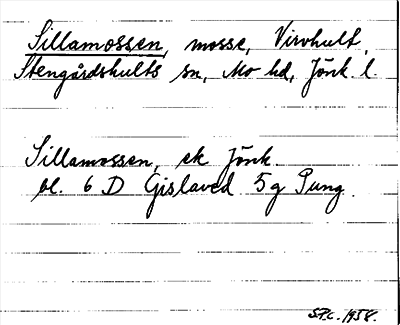 Sillamossen, mosse, Virvhult,
Stengårdshults sn, Mo hd, Jönk. l.
Sillamossen, ek Jönk.
bl. 6 D Gislaved 5g Pung.
S.P.C. 1958.